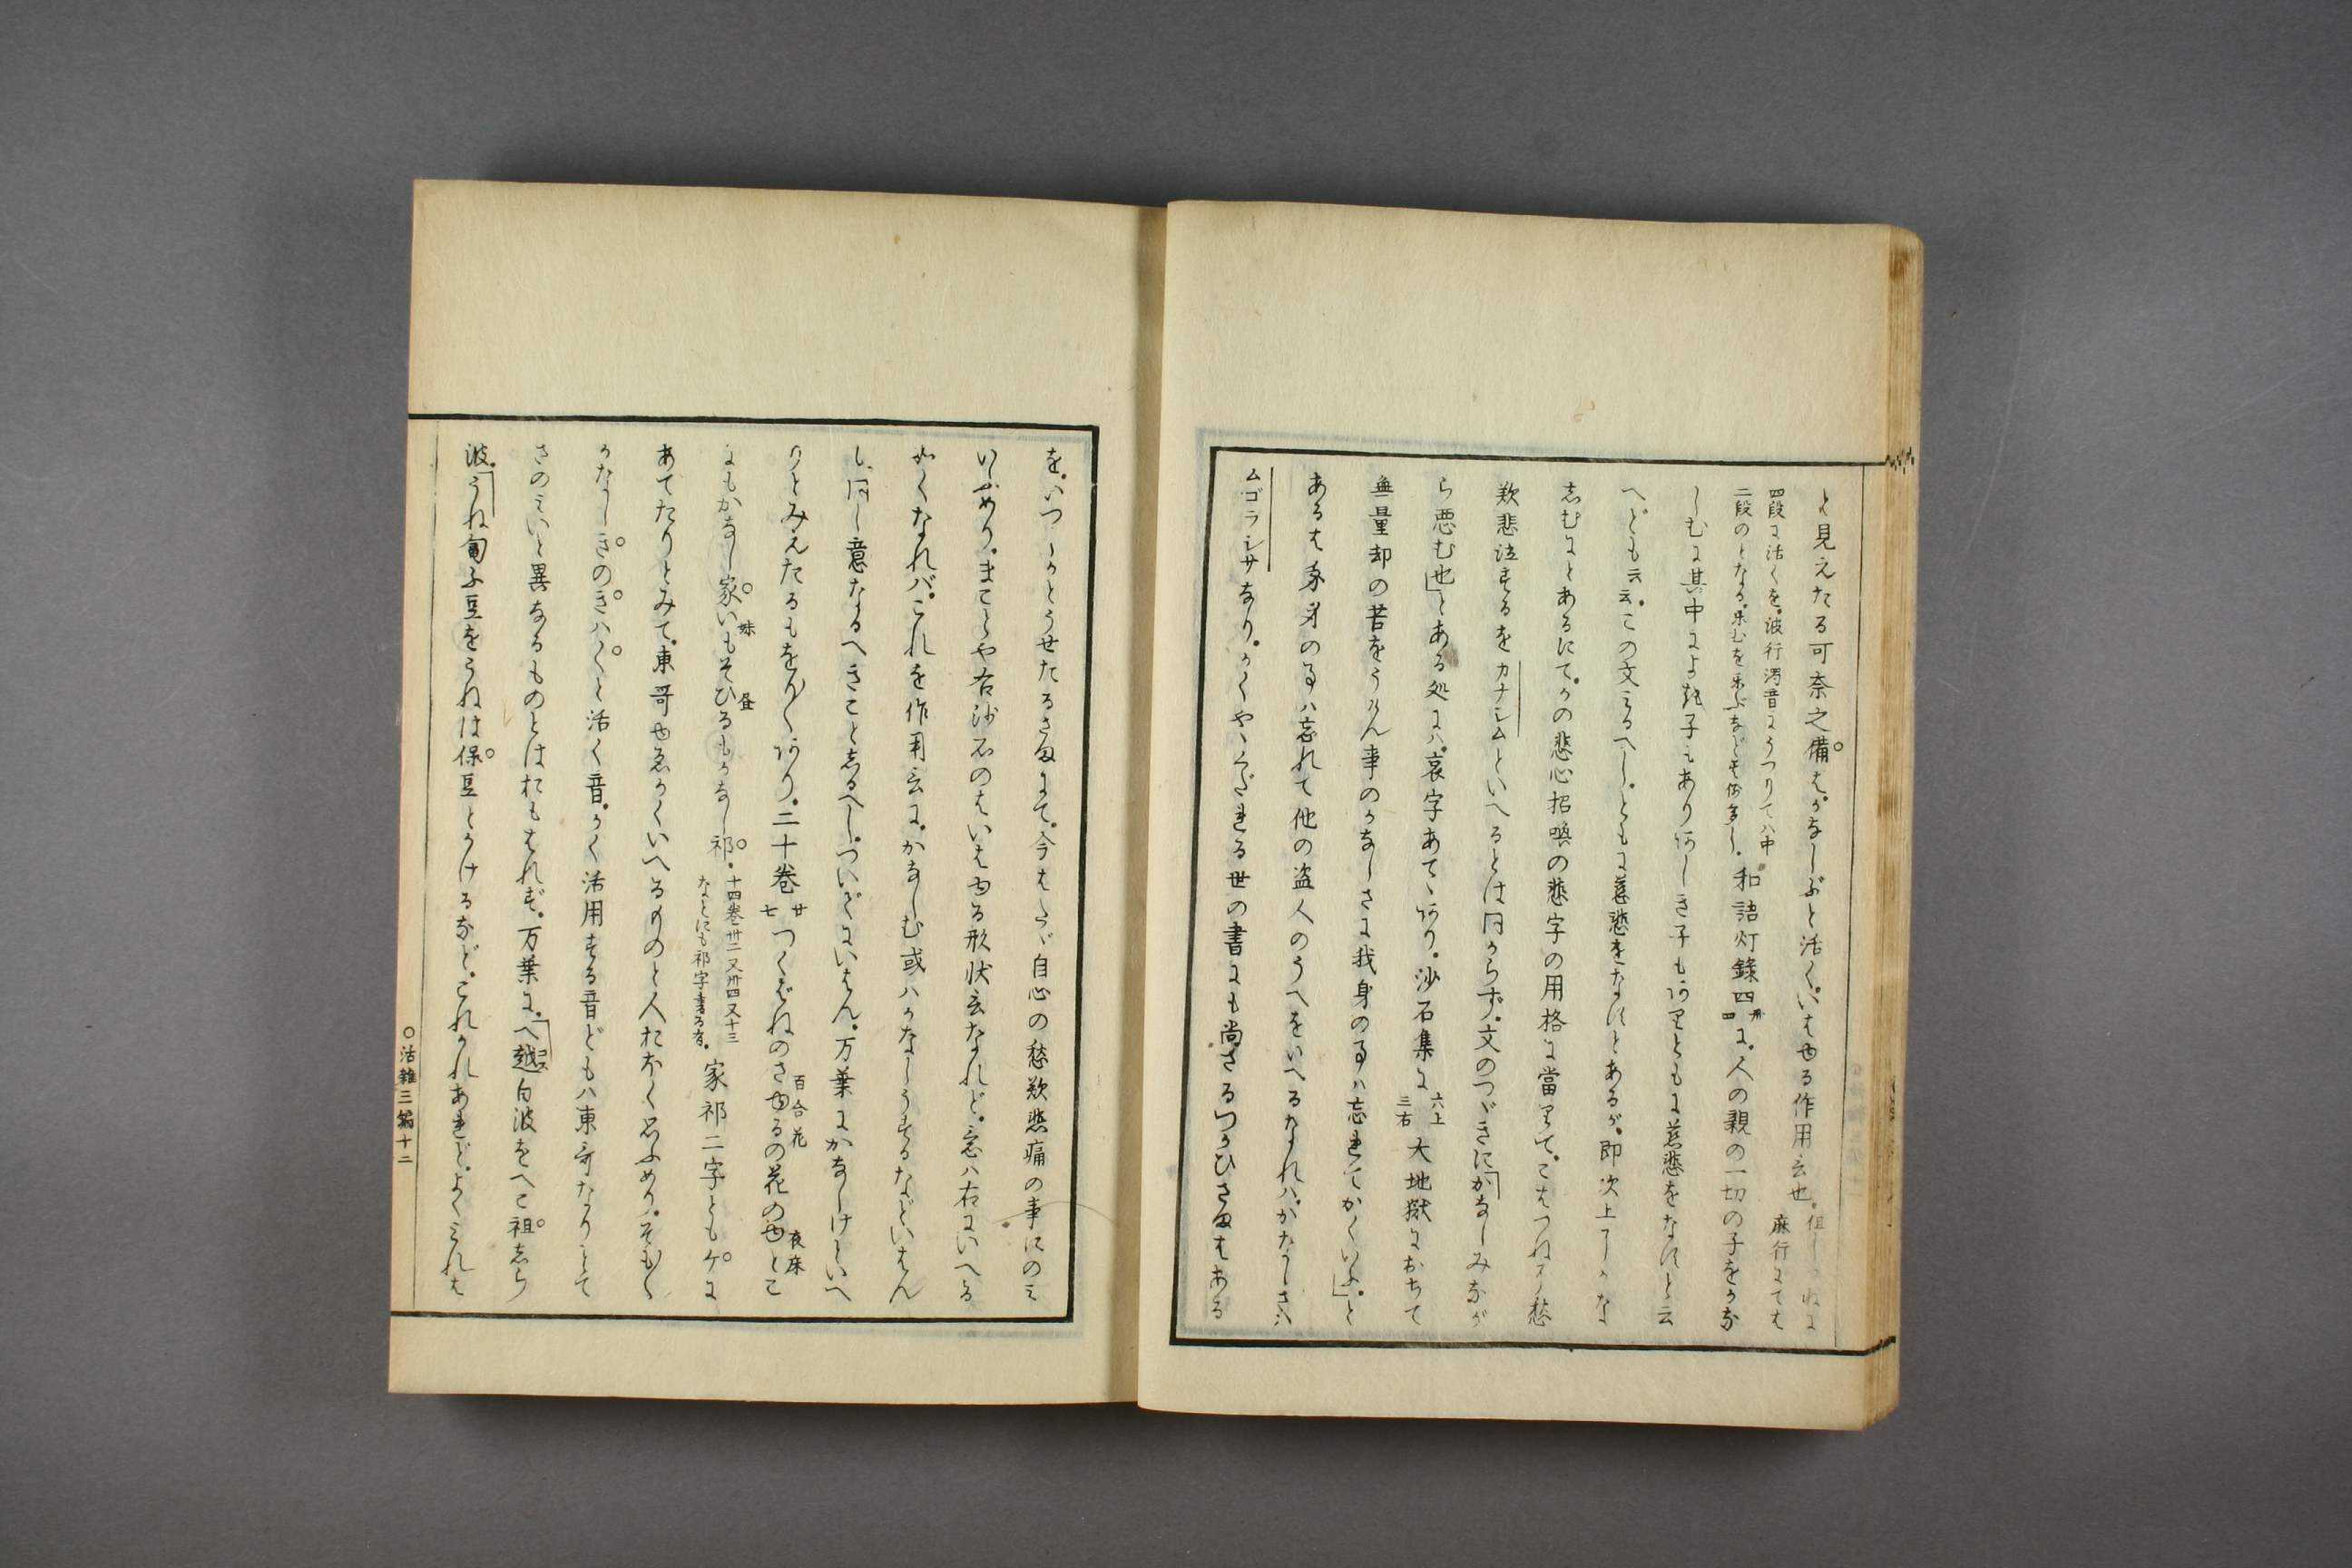 と見えたる可奈之備は。かなしぶと活く。いはゆる作用言也。但しつねに
麻行にては
四段に活くを。波行濁音にうつりては中
二段のとなる。楽むを楽ぶなども例多し。
和語灯録四
卅四
に。人の親の一切の子をかな
しむに其中によき子もあり何しき子も何りともに慈悲をなすと云
へども云云。この文みるへし。ともに慈悲をなすとあるが。即次上にかな
しむとあるにて。かの悲心招喚の悲字の用格に當りて。こはつねの愁
歎悲泣するをカナシムといへるとは同からず。文のつゞきに「かなしみなが
ら悪む也」とある処には。哀字あてゝ何り。沙石集に
六上
三右
大地獄におちて
無量却の苦をうけん事のかなしさに我身の事ハ忘れてかくいふ」と
あるは我身の事ハ忘れて他の盗人のうへをいへるなれハ。かなしさハ
ムゴラシサなり。かくやゝくだれる世の書にも尚さるつかひさまはある
を。いつしかとうせたるさまにて。今はたゞ自心の愁歎悲痛の事にのみ
いふめり。まことや右沙石のはいはゆる形状言なれど。意ハ右にいへる
如くなれバ。これを作用言に。かなしむ或ハかなしうするなどいはん
も。同し意なるへきこと知るへし。ついでにいはん。万葉にかなしけといへ
りとみえたるもをり〱何り。二十巻
廿
七
つくばねのさゆるの花のゆとこ
百合花
夜床
にもかなし家いもそひるもかなし祁。
妹
昼
十四巻卅二又卅四又十三
なとにも祁字書る有。
家祁二字ともケに
あてたりとみて。東哥ゆゑかくいへるものと人おほく思ふめり。そも〱
かなしきのきハくと活く音。かく活用する音どもハ東哥なりとて
さのみいと異なるものとはおもはれず。万葉に。「へ越白波をへこ祖しら
コス
波。「うね匍ふ豆をうねは保豆とかけるなど。これかれあれど。よくみれは
〇活雑三編十二